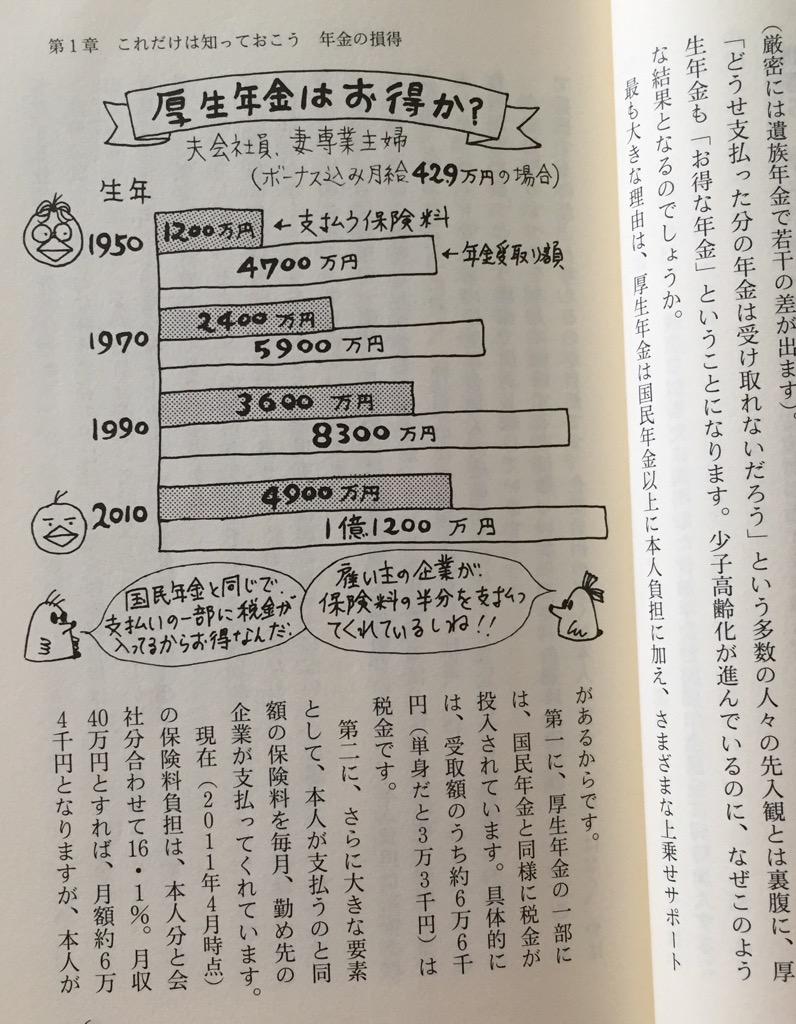 (厳密には遺族年金で若干の差が出ます)。
「どうせ支払った分の年金は受け取れないだろう」という多数の人々の先入観とは裏腹に、厚
生年金も「お得な年金」ということになります。少子高齢化が進んでいるのに、なぜこのよう
な結果となるのでしょうか。
最も大きな理由は、厚生年金は国民年金以上に本人負担に加え、さまざまな上乗せサポート
第1章 これだけは知っておこう 年金の損得
厚生年金はお得か?
夫会社員、妻専業主婦
(ボーナス込み月給429万円の場合)
生年
1950
1200万円
←支払う保険料
4700万円
←年金受取り額
1970
2400万円
5900万円
1990
3600万円
8300万円
2010
4900万円
1億1200万円
雇い主の企業が
保険料の半分を支払っ
てくれているしね!!
国民年金と同じで
支払いの一部に税金が
入ってるからお得なんだ。
があるからです。
第一に、厚生年金の一部に
は、国民年金と同様に税金が
投入されています。具体的に
は、受取額のうち約6万6千
円(単身だと3万3千円)は
税金です。
第二に、さらに大きな要素
として、本人が支払うのと同
額の保険料を毎月、勤め先の
企業が支払ってくれています。
現在(2011年4月時点)
の保険料負担は、本人分と会
社分合わせて16・1%。月収
40万円とすれば、月額約6万
4千円となりますが、本人が